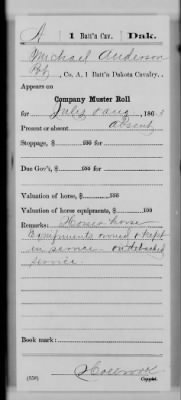 A | 1 Batt'n Cav. | Dak.
Michael Anderson
Pvt, Co. A, 1 Batt'n Dakota Cavalry.
Appears on
Company Muster Roll
for July & Aug, 1863
Present or absent Absent
Stoppage, $ 100 for
Due Gov't, $ 100 for
Valuation of horse, $ 100
Valuation of horse equipments, $ 100
Remarks: Horse & horse
Equipments owned & kept
in service. On detached
service.
Book mark:
(358)
Copyist.